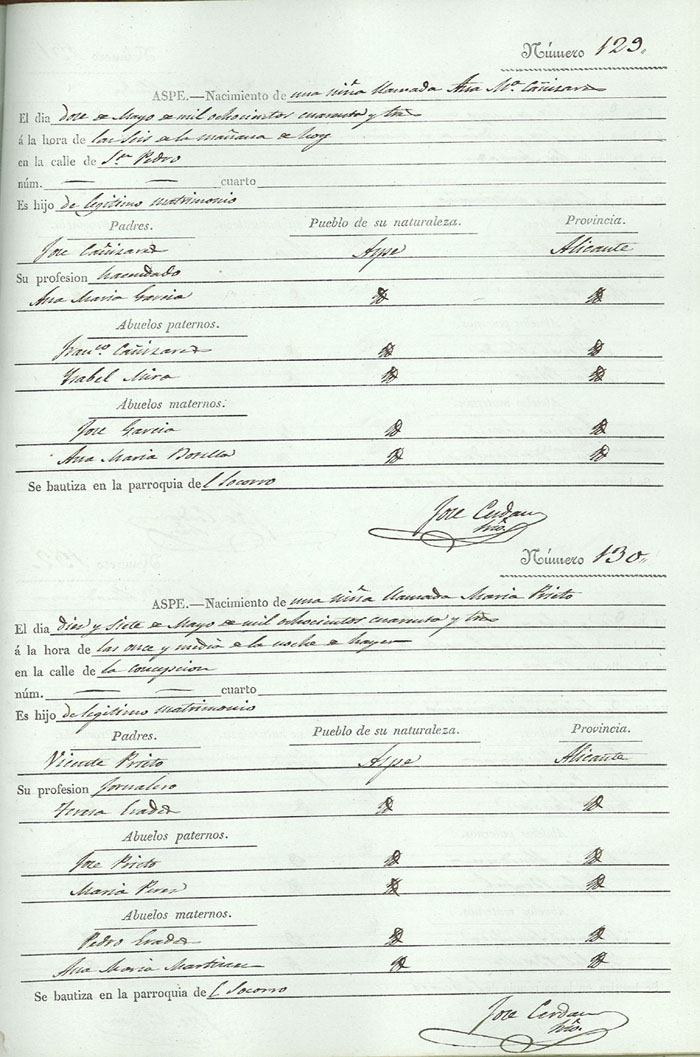 Número 129.
ASPE.—Nacimiento de una niña llamada Ana Mª Cañizares
El dia dose de Mayo de mil ochocientos cuarenta y tres
á la hora de las seis de la mañana de hoy
en la calle de Sn Pedro
núm. — — cuarto
Es hijo de legitimo matrimonio
Padres. Pueblo de su naturaleza. Provincia.
Jose Cañizares Aspe Alicante
Su profesion hacendado
Ana Maria Garcia id id
Abuelos paternos.
Franco Cañizares id id
Ysabel Miro id id
Abuelos maternos.
Jose Garcia id id
Ana Maria Botella id id
Se bautiza en la parroquia de l Socorro
Jose Cerdan
Número 130.
ASPE.—Nacimiento de una niña llamada Maria Prieto
El dia diez y siete de Mayo de mil ochocientos cuarenta y tres
á la hora de las once y media de la noche de hayer
en la calle de la concepcion
núm. — — cuarto
Es hijo de legitimo matrimonio
Padres. Pueblo de su naturaleza. Provincia.
Vicente Prieto Aspe Alicante
Su profesion Jornalero
Teresa id id
Abuelos paternos.
Jose Prieto id id
Maria Perez id id
Abuelos maternos.
Pedro id id
Ana Maria Martinez id id
Se bautiza en la parroquia de l Socorro
Jose Cerdan